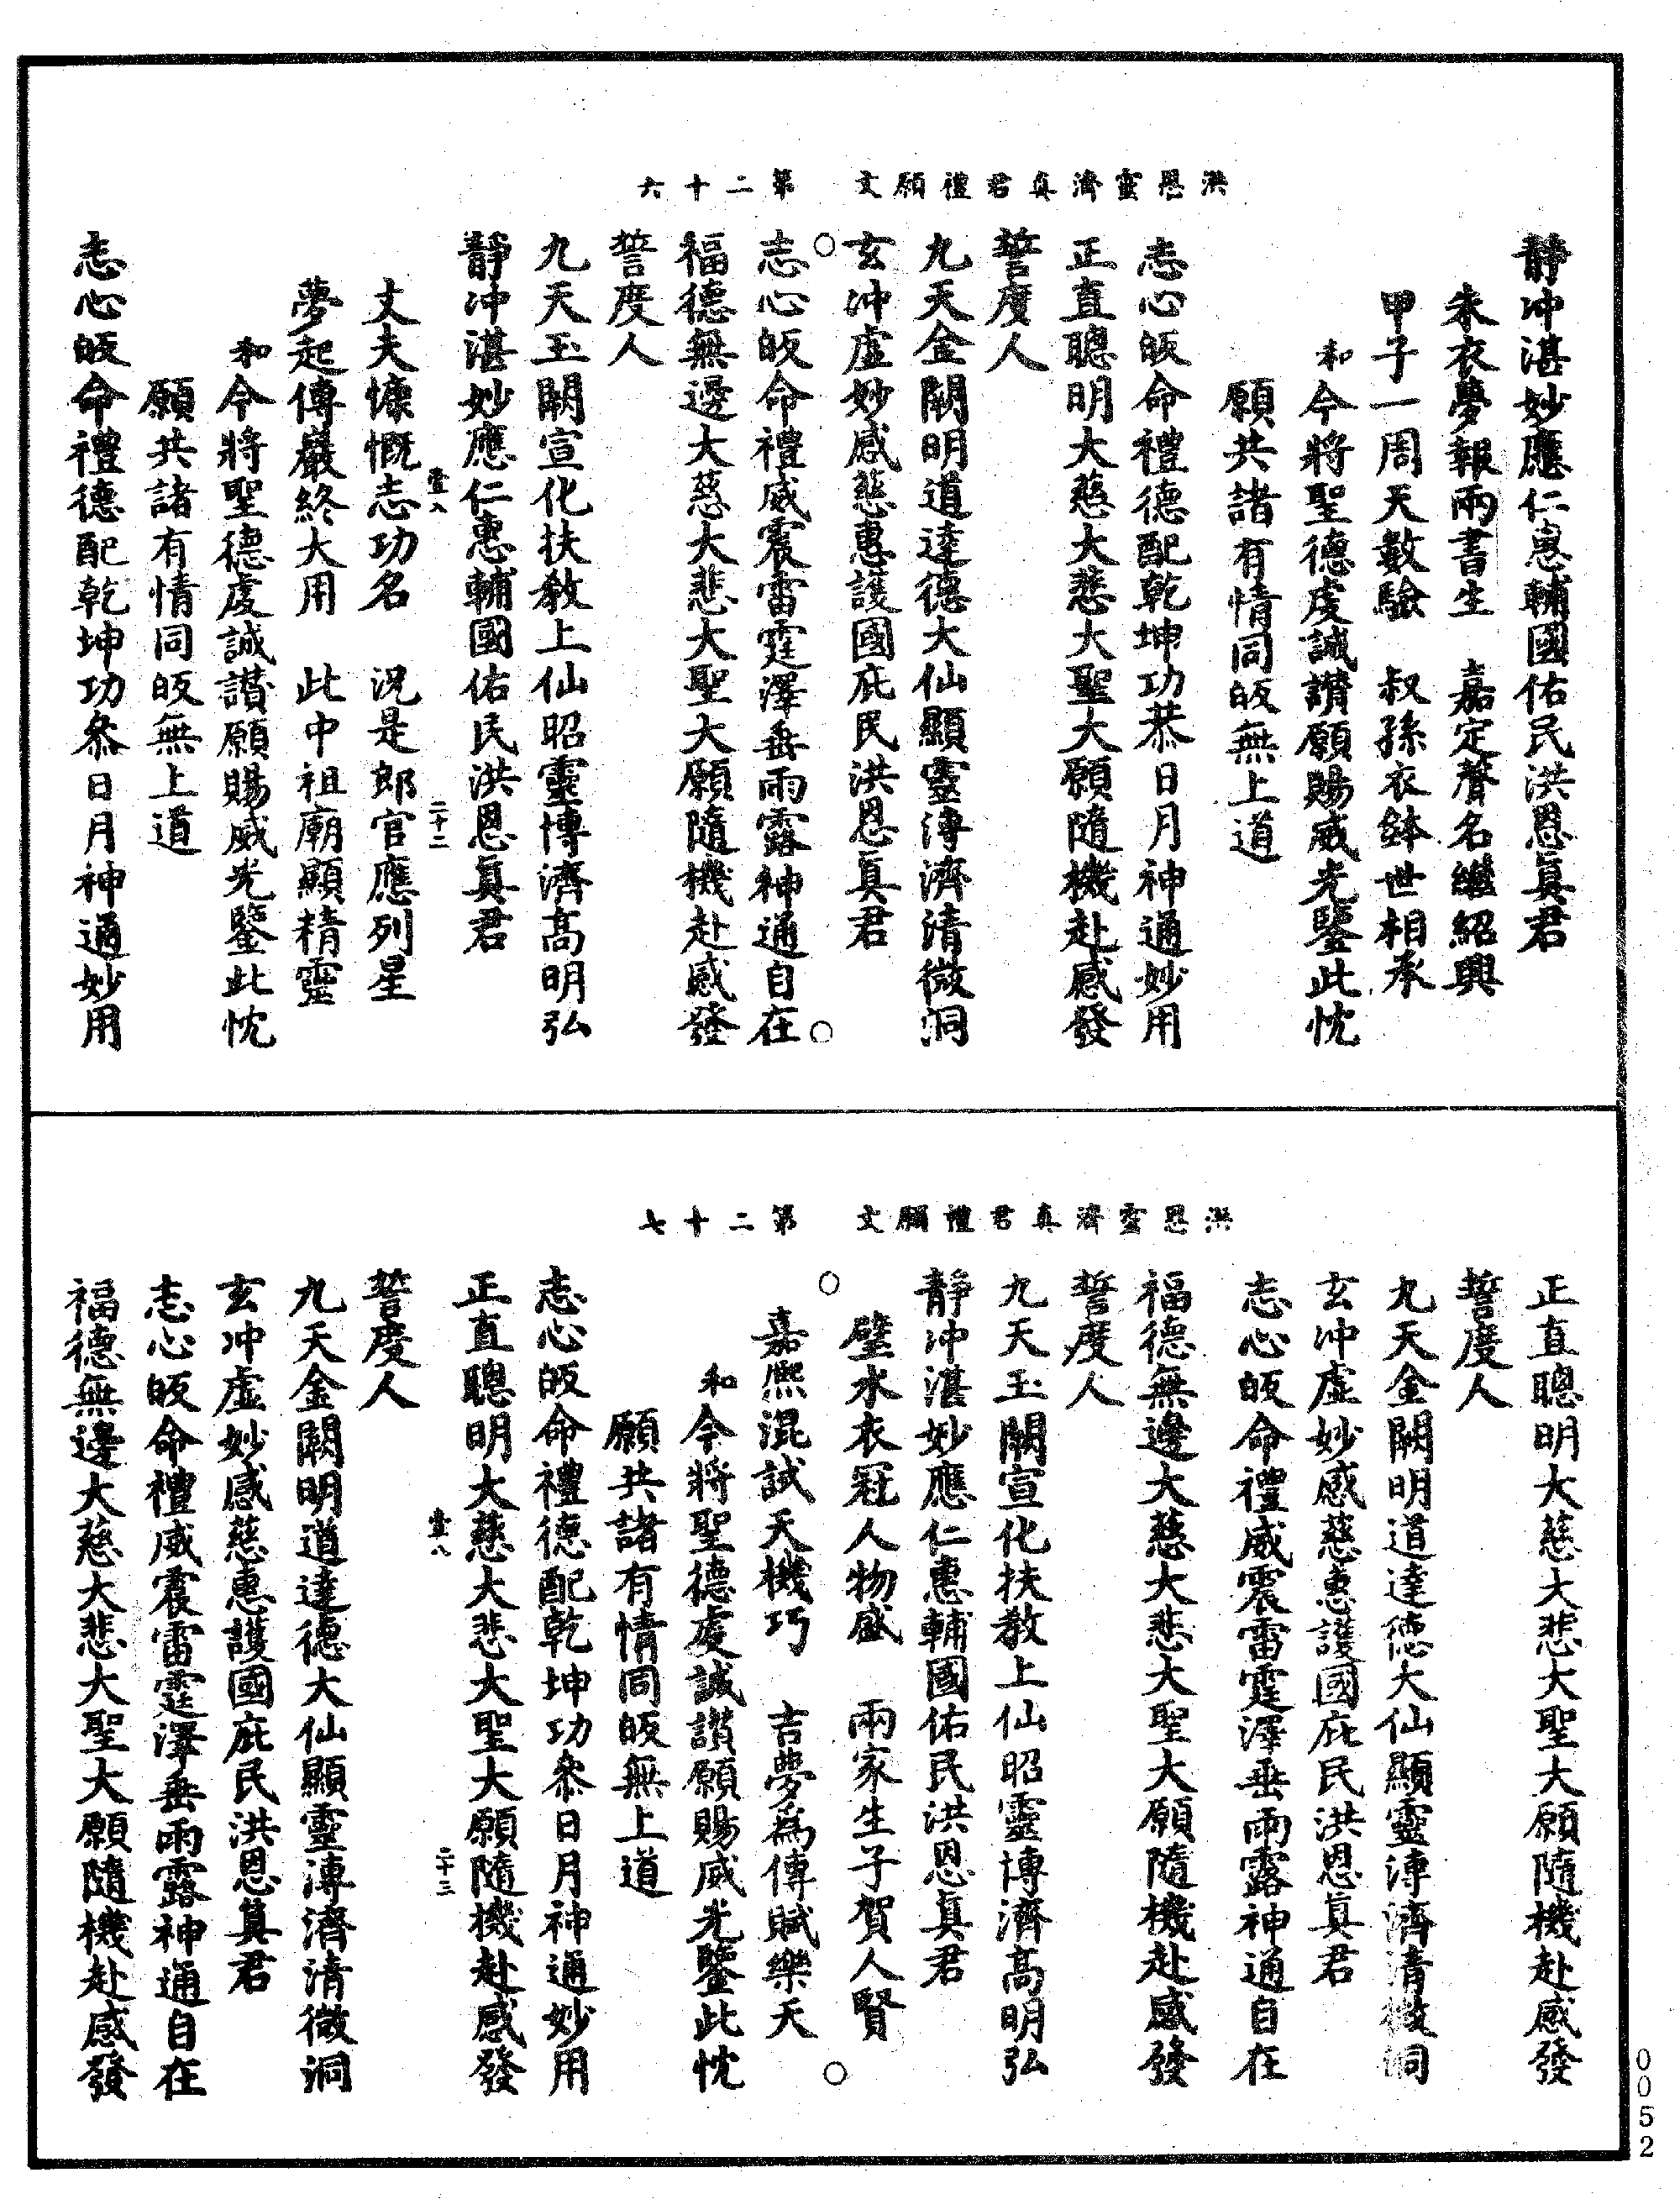 洪恩靈濟真君禮願文　第二十六
靜冲湛妙應仁惠輔國佑民洪恩眞君
朱衣夢報兩書生　嘉定聲名繼紹興
甲子一周天數驗　叔孫衣鉢世相承
和今將聖德虔誠讚願賜威光鑒此忱
願共諸有情同皈無上道
志心皈命禮德配乾坤功叅日月神通妙用
正直聰明大慈大悲大聖大願隨機赴感發
誓度人
九天金闕明道達德大仙顯靈溥濟清微洞
玄冲虛妙感慈惠護國庇民洪恩眞君
○志心皈命禮威震雷霆澤垂雨露神通自在○
福德無邊大慈大悲大聖大願隨機赴感發
誓度人
九天玉闕宣化扶教上仙昭靈博濟高明弘
靜冲湛妙應仁惠輔國佑民洪恩眞君
壹八　二十二
丈夫慷慨志功名　況是郎官應列星
夢起傅巖終大用　此中祖廟顯精靈
和今將聖德虔誠讚願賜威光鑒此忱
願共諸有情同皈無上道
志心皈命禮德配乾坤功叅日月神通妙用
洪恩靈濟真君禮願文　第二十七
正直聰明大慈大悲大聖大願隨機赴感發
誓度人
九天金闕明道達德大仙顯靈溥濟清微洞
玄冲虛妙感慈惠護國庇民洪恩眞君
志心皈命禮威震雷霆澤垂雨露神通自在
福德無邊大慈大悲大聖大願隨機赴感發
誓度人
九天玉闕宣化扶教上仙昭靈博濟高明弘
靜冲湛妙應仁惠輔國佑民洪恩眞君
璧水衣冠人物盛　兩家生子賀人賢
○嘉熈混試天機巧　吉夢為傳賦樂天○
和今將聖德虔誠讚願賜威光鑒此忱
願共諸有情同皈無上道
志心皈命禮德配乾坤功叅日月神通妙用
正直聰明大慈大悲大聖大願隨機赴感發
壹八　二十三
誓度人
九天金闕明道達德大仙顯靈溥濟清微洞
玄冲虛妙感慈惠護國庇民洪恩眞君
志心皈命禮威震雷霆澤垂雨露神通自在
福德無邊大慈大悲大聖大願隨機赴感發
0052